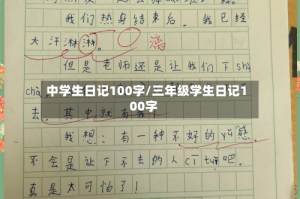 我们热身结束后,我已经
大汗淋淋。 满
但是老师还是让我们下shà
去。其中就有我
中学生日记100字/三年级学生日记1
00字
我想:有一种不好的预感
不会是让下不去的人cī tuǐ吧。
真是太可怕了!